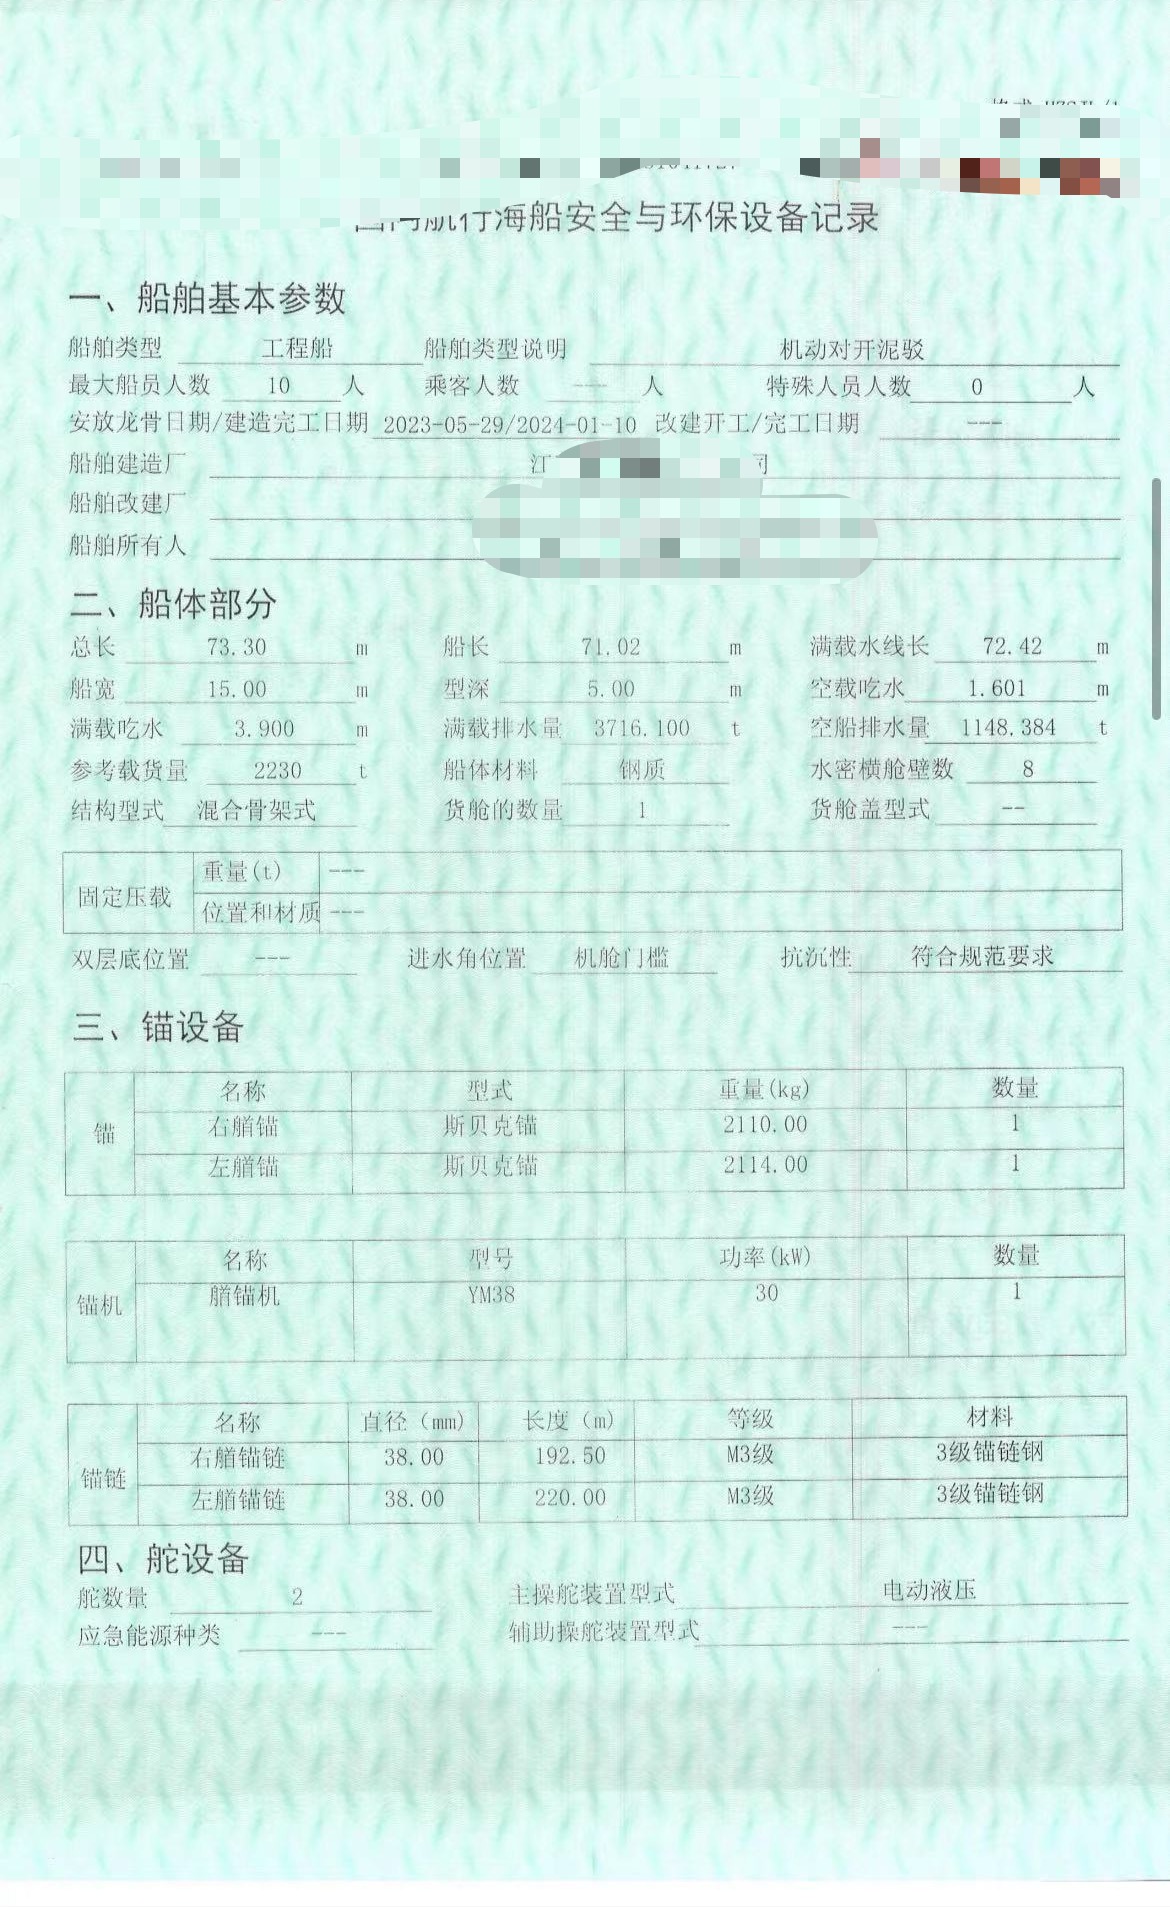 航行海船安全与环保设备记录
一、船舶基本参数
船舶类型 工程船 船舶类型说明 机动对开泥驳
最大船员人数 10 人 乘客人数 --- 人 特殊人员人数 0 人
安放龙骨日期/建造完工日期 2023-05-29/2024-01-10 改建开工/完工日期 ---
船舶建造厂 江
船舶改建厂
船舶所有人
二、船体部分
总长 73.30 m 船长 71.02 m 满载水线长 72.42 m
船宽 15.00 m 型深 5.00 m 空载吃水 1.601 m
满载吃水 3.900 m 满载排水量 3716.100 t 空船排水量 1148.384 t
参考载货量 2230 t 船体材料 钢质 水密横舱壁数 8
结构型式 混合骨架式 货舱的数量 1 货舱盖型式 --
固定压载 重量(t) ---
位置和材质 ---
双层底位置 --- 进水角位置 机舱门槛 抗沉性 符合规范要求
三、锚设备
锚 名称 型式 重量(kg) 数量
右艏锚 斯贝克锚 2110.00 1
左艏锚 斯贝克锚 2114.00 1
锚机 名称 型号 功率(kW) 数量
艏锚机 YM38 30 1
锚链 名称 直径（mm） 长度（m） 等级 材料
右艏锚链 38.00 192.50 M3级 3级锚链钢
左艏锚链 38.00 220.00 M3级 3级锚链钢
四、舵设备
舵数量 2 主操舵装置型式 电动液压
应急能源种类 --- 辅助操舵装置型式 ---